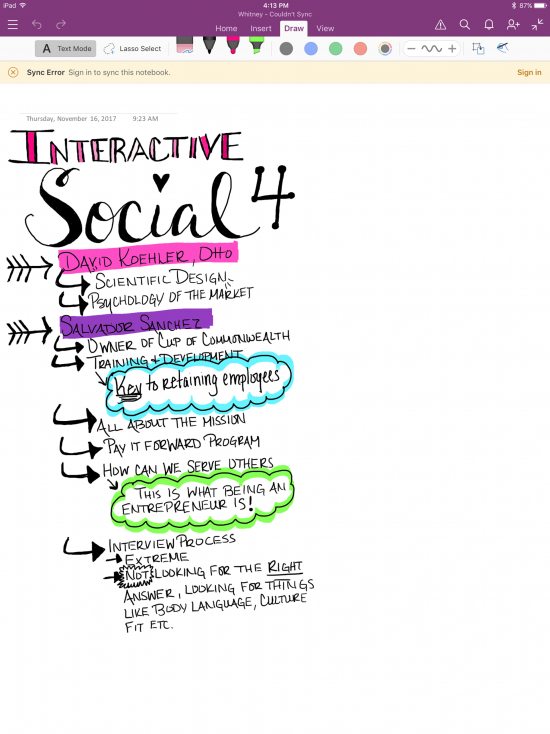 iPad
4:13 PM
87%
Whitney - Couldn't Sync
Home Insert Draw View
A Text Mode
Lasso Select
Sync Error Sign in to sync this notebook.
Sign in
Thursday, November 16, 2017 9:23 AM
INTERACTIVE
Social 4
DAVID KOEHLER, DHO
SCIENTIFIC DESIGN
PSYCHOLOGY OF THE MARKET
SALVADOR SANCHEZ
OWNER OF CUP OF COMMONWEALTH
TRAINING + DEVELOPMENT
Key to retaining employees
ALL ABOUT THE MISSION
PAY IT FORWARD PROGRAM
HOW CAN WE SERVE OTHERS
THIS IS WHAT BEING AN
ENTREPRENEUR IS!
INTERVIEW PROCESS
EXTREME
NOT LOOKING FOR THE RIGHT
ANSWER, LOOKING FOR THINGS
LIKE BODY LANGUAGE, CULTURE
FIT ETC.